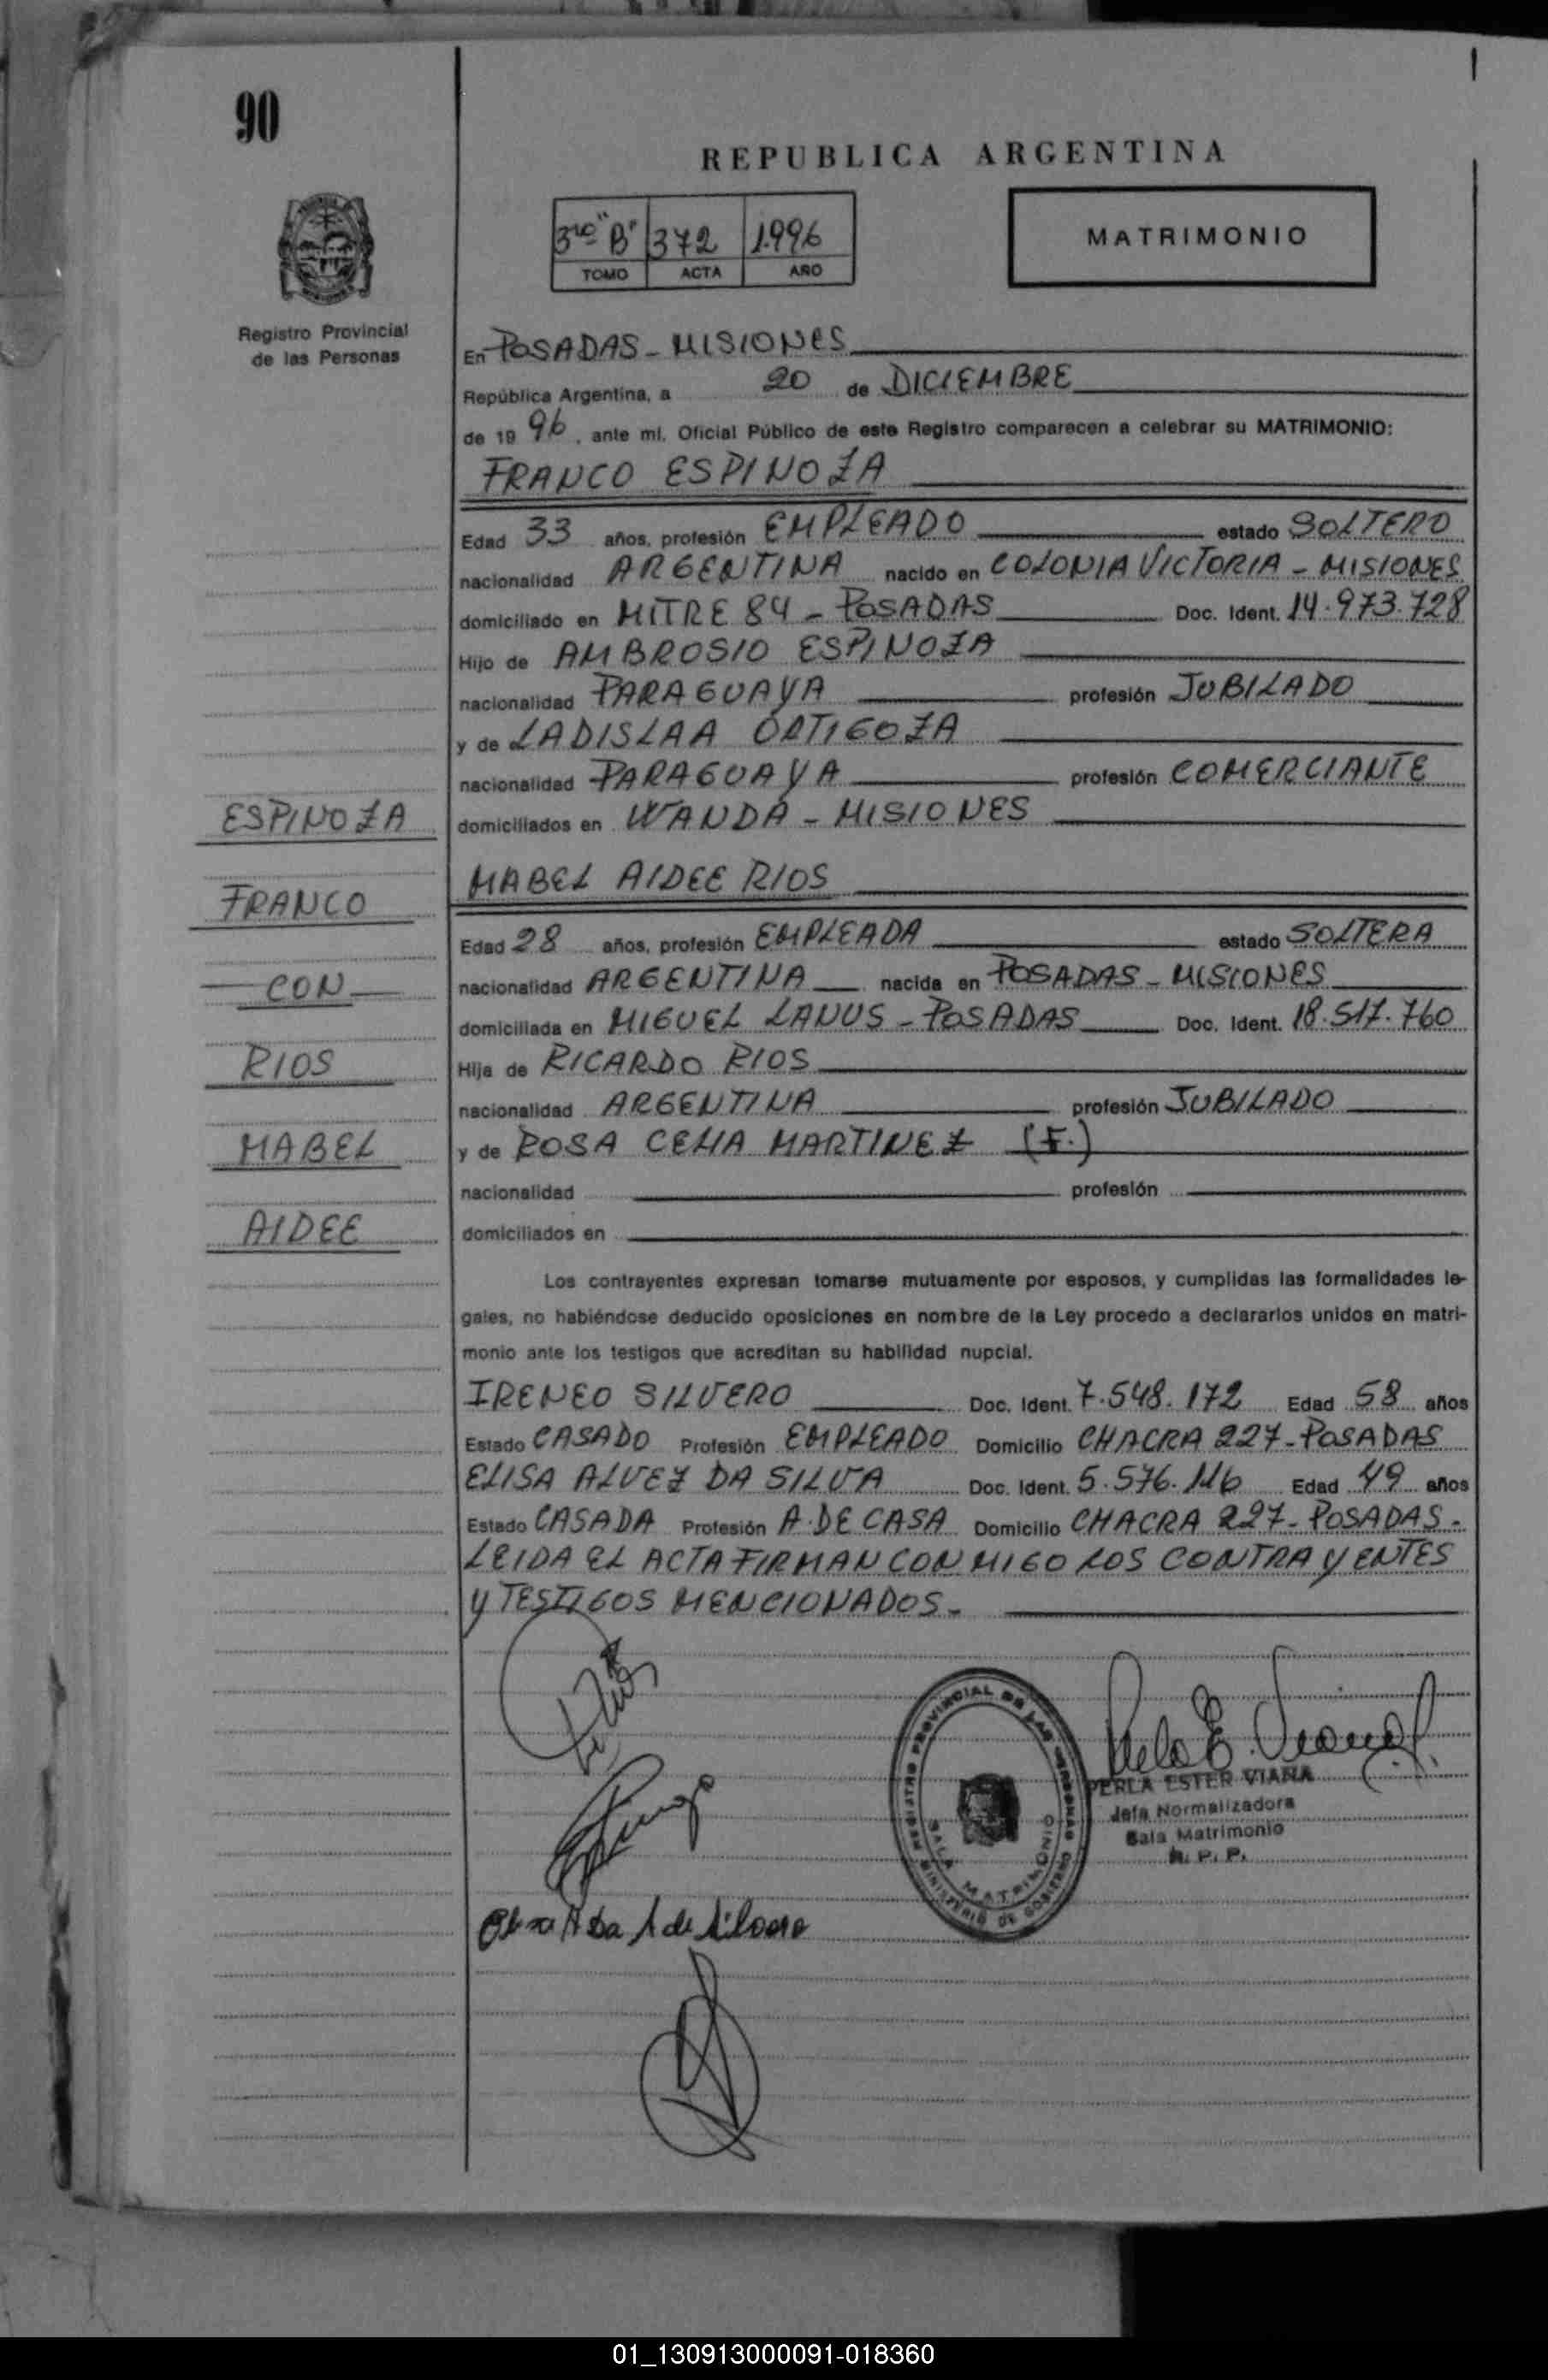 90
REPUBLICA ARGENTINA
3ro "B" 372 1.996
TOMO ACTA AÑO
MATRIMONIO
Registro Provincial
de las Personas
En POSADAS - MISIONES
República Argentina, a 20 de DICIEMBRE
de 19 96, ante mi, Oficial Público de este Registro comparecen a celebrar su MATRIMONIO:
FRANCO ESPINOZA
Edad 33 años, profesión EMPLEADO estado SOLTERO
nacionalidad ARGENTINA nacido en COLONIA VICTORIA - MISIONES
domiciliado en MITRE 84 - POSADAS Doc. Ident. 14.973.728
Hijo de AMBROSIO ESPINOZA
nacionalidad PARAGUAYA profesión JUBILADO
y de LADISLAA ORTIGOZA
nacionalidad PARAGUAYA profesión COMERCIANTE
domiciliados en WANDA - MISIONES
ESPINOZA
FRANCO
CON
RIOS
MABEL
AIDEE
MABEL AIDEE RIOS
Edad 28 años, profesión EMPLEADA estado SOLTERA
nacionalidad ARGENTINA nacida en POSADAS - MISIONES
domiciliada en MIGUEL LANUS - POSADAS Doc. Ident. 18.517.760
Hija de RICARDO RIOS
nacionalidad ARGENTINA profesión JUBILADO
y de ROSA CELIA MARTINEZ (F.)
nacionalidad profesión
domiciliados en
Los contrayentes expresan tomarse mutuamente por esposos, y cumplidas las formalidades le-
gales, no habiéndose deducido oposiciones en nombre de la Ley procedo a declararlos unidos en matri-
monio ante los testigos que acreditan su habilidad nupcial.
IRENEO SILVERO Doc. Ident. 7.548.172 Edad 58 años
Estado CASADO Profesión EMPLEADO Domicilio CHACRA 227 - POSADAS
ELISA ALVEZ DA SILVA Doc. Ident. 5.576.116 Edad 49 años
Estado CASADA Profesión A. DE CASA Domicilio CHACRA 227 - POSADAS -
LEIDA EL ACTA FIRMAN CONMIGO LOS CONTRAYENTES
Y TESTIGOS MENCIONADOS -
REGISTRO PROVINCIAL DE LAS PERSONAS
MINISTERIO DE GOBIERNO
SALA MATRIMONIO
PERLA ESTER VIANA
Jefa Normalizadora
Sala Matrimonio
R. P. P.
01_130913000091-018360